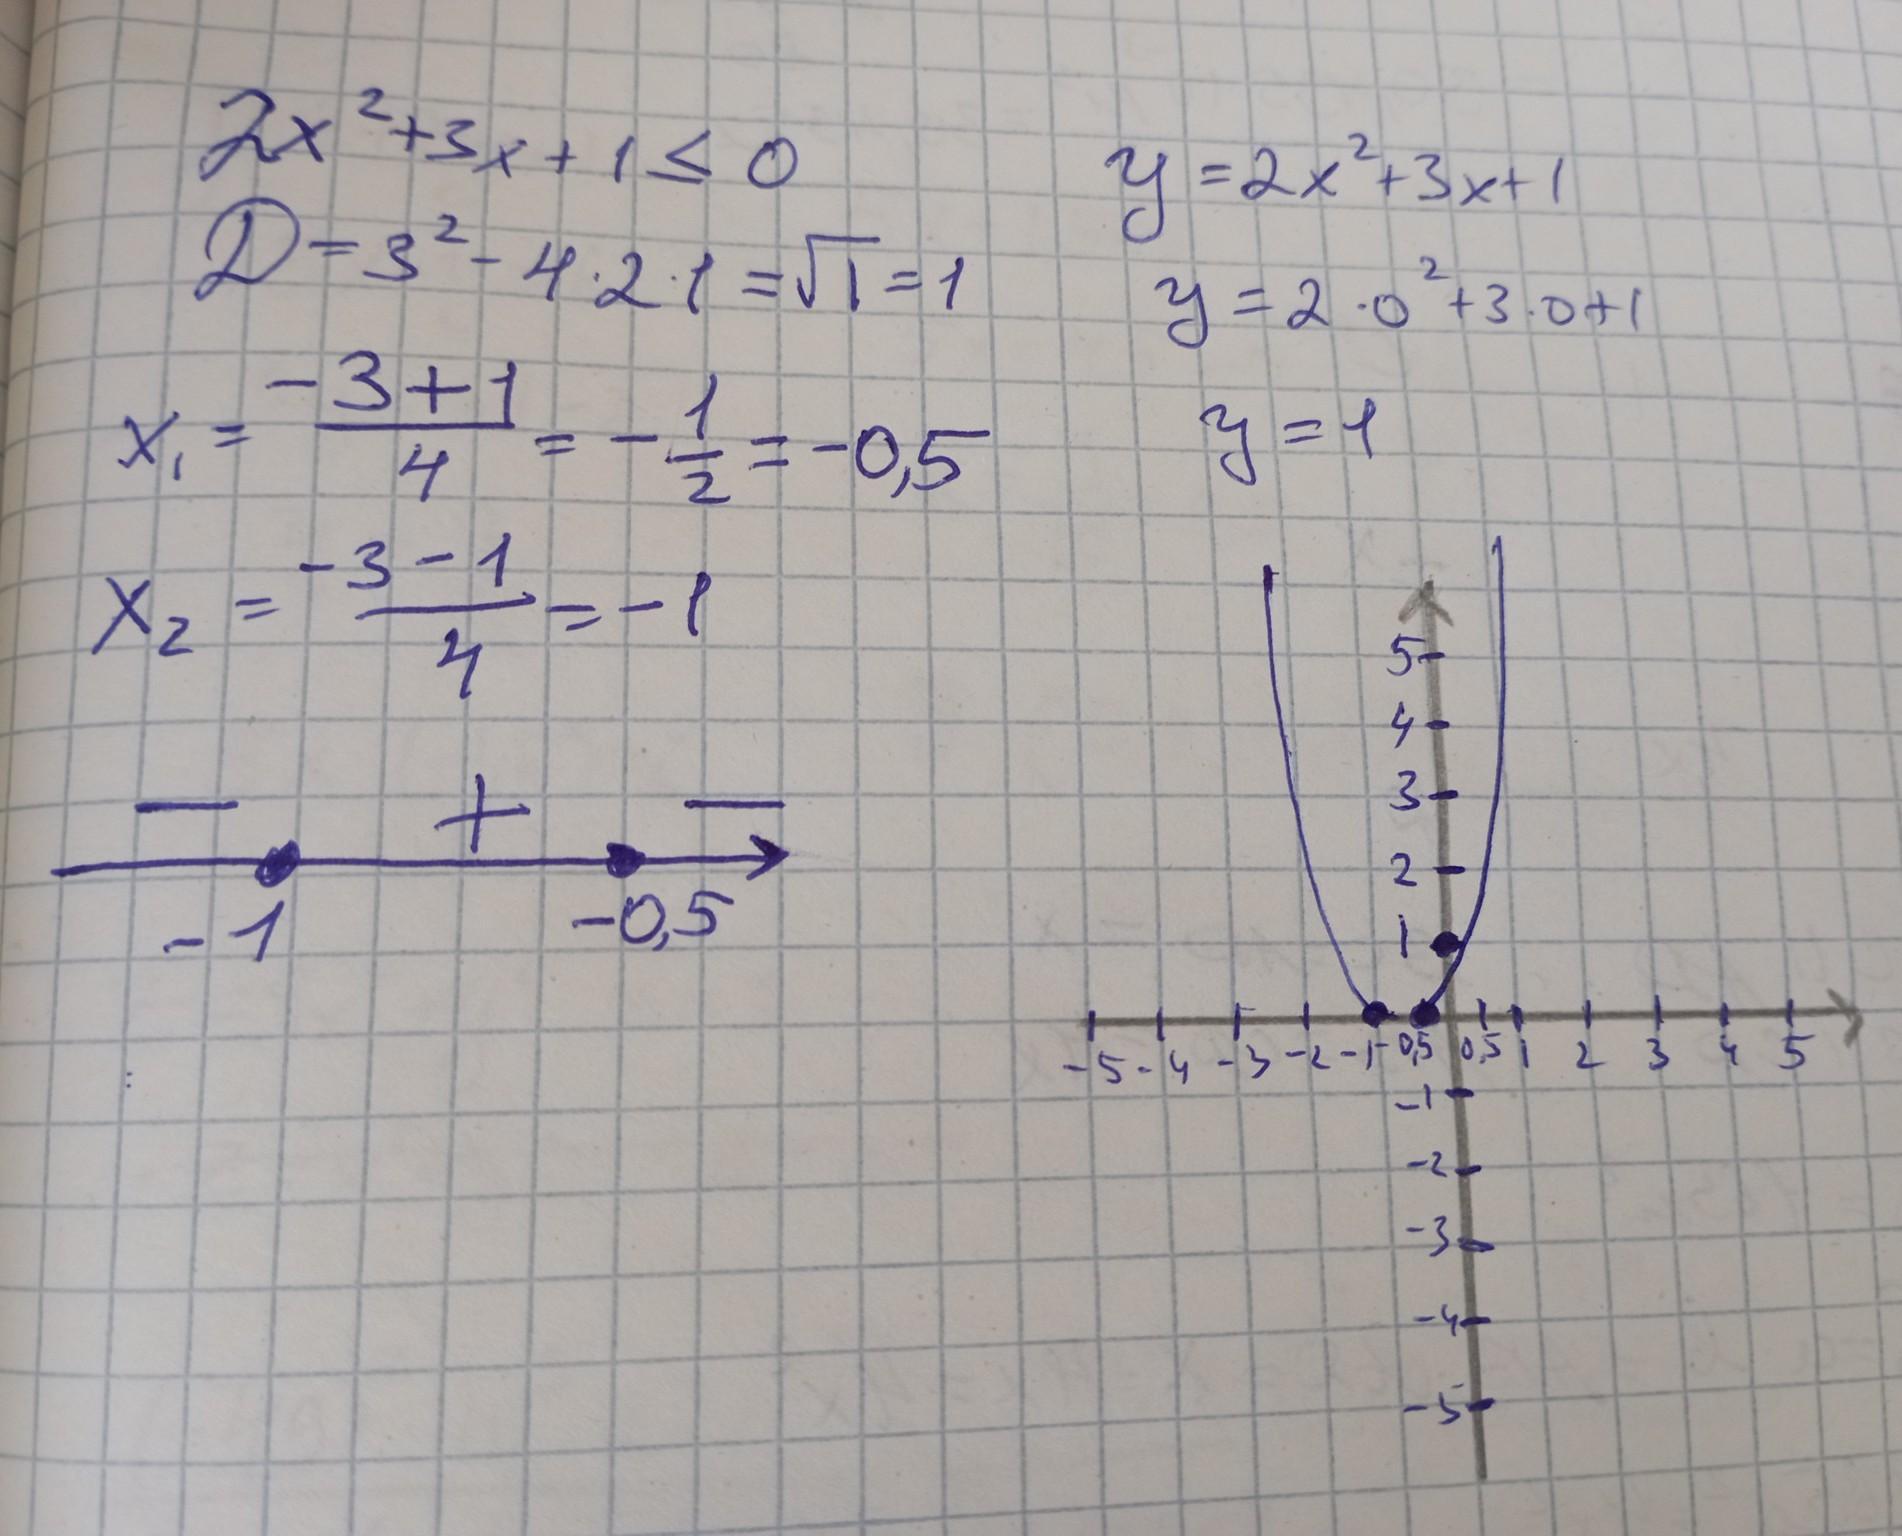 2x²+3x+1≤0
D=3²-4·2·1=√1=1
x₁ = (-3+1)/4 = -1/2 = -0,5
x₂ = (-3-1)/4 = -1
— + —
-1 -0,5
y=2x²+3x+1
y=2·0²+3·0+1
y=1
5
4
3
2
1
-5 -4 -3 -2 -1 -0,5 0,5 1 2 3 4 5
-1
-2
-3
-4
-5